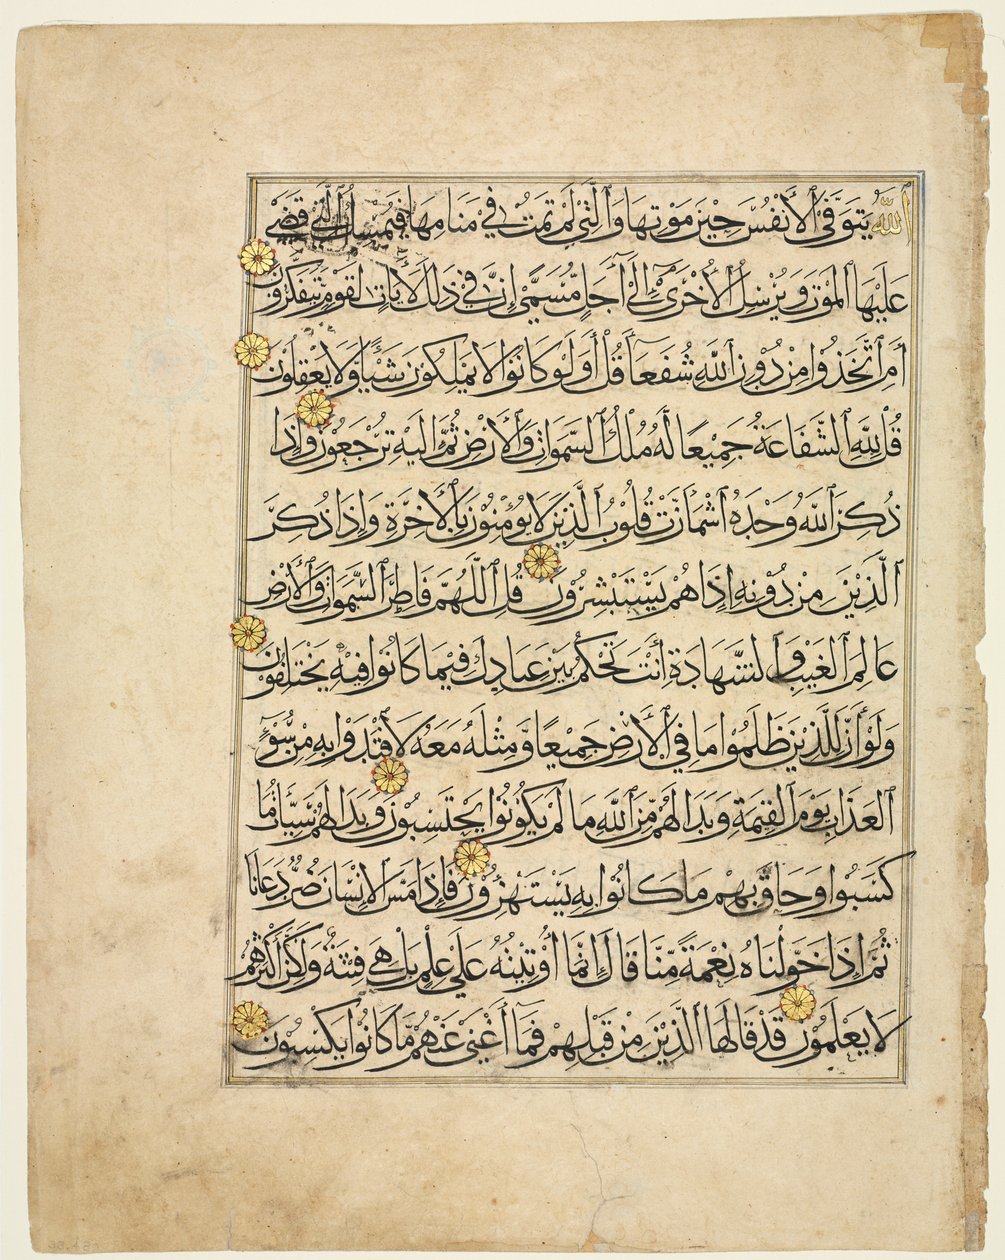 ٱللَّهُ يَتَوَفَّى ٱلْأَنفُسَ حِينَ مَوْتِهَا وَٱلَّتِي لَمْ تَمُتْ فِي مَنَامِهَا فَيُمْسِكُ ٱلَّتِي قَضَى
عَلَيْهَا ٱلْمَوْتَ وَيُرْسِلُ ٱلْأُخْرَىٰٓ إِلَىٰٓ أَجَلٍ مُّسَمًّى إِنَّ فِي ذَٰلِكَ لَآيَاتٍ لِقَوْمٍ يَتَفَكَّرُونَ
أَمِ ٱتَّخَذُوا مِنْ دُونِ ٱللَّهِ شُفَعَآءَ قُلْ أَوَلَوْ كَانُوا لَا يَمْلِكُونَ شَيْـًٔا وَلَا يَعْقِلُونَ
قُلْ لِلَّهِ ٱلشَّفَاعَةُ جَمِيعًا لَّهُ مُلْكُ ٱلسَّمَوَاتِ وَٱلْأَرْضِ ثُمَّ إِلَيْهِ تُرْجَعُونَ وَإِذَا
ذُكِرَ ٱللَّهُ وَحْدَهُ ٱشْمَأَزَّتْ قُلُوبُ ٱلَّذِينَ لَا يُؤْمِنُونَ بِٱلْأَخِرَةِ وَإِذَا ذُكِرَ
ٱلَّذِينَ مِنْ دُونِهِ إِذَا هُمْ يَسْتَبْشِرُونَ قُلِ ٱللَّهُمَّ فَاطِرَ ٱلسَّمَوَاتِ وَٱلْأَرْضِ
عَالِمَ ٱلْغَيْبِ وَٱلشَّهَادَةِ أَنْتَ تَحْكُمُ بَيْنَ عِبَادِكَ فِيمَا كَانُوا فِيهِ يَخْتَلِفُونَ
وَلَوْ أَنَّ لِلَّذِينَ ظَلَمُوا مَا فِي ٱلْأَرْضِ جَمِيعًا وَمِثْلَهُ مَعَهُ لَافْتَدَوْا بِهِ مِنْ سُوٓءِ
ٱلْعَذَابِ يَوْمَ ٱلْقِيَمَةِ وَبَدَا لَهُمْ مِّنَ ٱللَّهِ مَا لَمْ يَكُونُوا يَحْتَسِبُونَ وَبَدَا لَهُمْ سَيِّـَٔاتُ مَا
كَسَبُوا وَحَاقَ بِهِمْ مَا كَانُوا بِهِ يَسْتَهْزِءُونَ فَإِذَا مَسَّ ٱلْإِنْسَانَ ضُرٌّ دَعَانَا
ثُمَّ إِذَا خَوَّلْنَاهُ نِعْمَةً مِّنَّا قَالَ إِنَّمَا أُوتِيتُهُ عَلَى عِلْمٍ بَلْ هِيَ فِتْنَةٌ وَلَكِنَّ أَكْثَرَهُمْ
لَا يَعْلَمُونَ قَدْ قَالَهَا ٱلَّذِينَ مِنْ قَبْلِهِمْ فَمَآ أَغْنَى عَنْهُمْ مَّا كَانُوا يَكْسِبُونَ